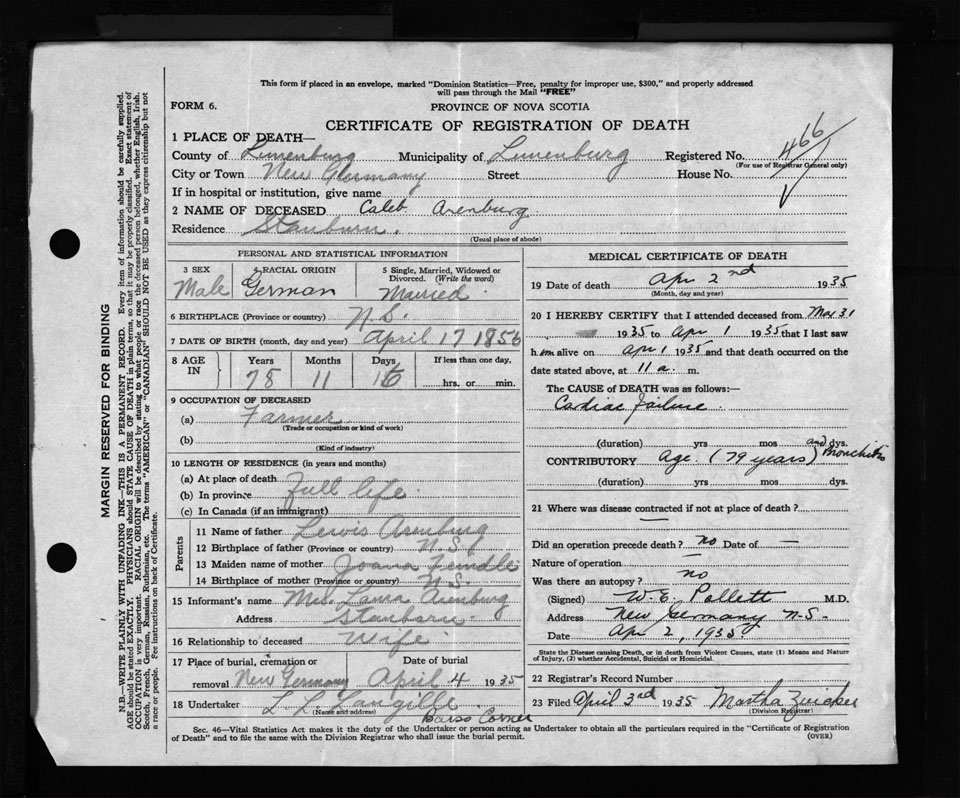 This form if placed in an envelope, marked "Dominion Statistics—Free, penalty for improper use, $300," and properly addressed
will pass through the Mail "FREE"
FORM 6.
PROVINCE OF NOVA SCOTIA
CERTIFICATE OF REGISTRATION OF DEATH
466
1 PLACE OF DEATH—
County of Lunenburg Municipality of Lunenburg Registered No.
(For use of Registrar General only)
City or Town New Germany Street House No.
If in hospital or institution, give name
2 NAME OF DECEASED Caleb Arenburg
Residence Stanburn
(Usual place of abode)
PERSONAL AND STATISTICAL INFORMATION
3 SEX 4 RACIAL ORIGIN 5 Single, Married, Widowed or Divorced. (Write the word)
Male German Married
6 BIRTHPLACE (Province or country) N.S.
7 DATE OF BIRTH (month, day and year) April 17 1856
8 AGE IN Years Months Days If less than one day,
78 11 16 hrs. or min.
9 OCCUPATION OF DECEASED
(a) Farmer
(Trade or occupation or kind of work)
(b)
(Kind of industry)
10 LENGTH OF RESIDENCE (in years and months)
(a) At place of death
(b) In province full life
(c) In Canada (if an immigrant)
Parents
11 Name of father Lewis Arenburg
12 Birthplace of father (Province or country) N.S.
13 Maiden name of mother Joana
14 Birthplace of mother (Province or country) N.S.
15 Informant's name Mrs. Laura Arenburg
Address Stanburn
16 Relationship to deceased Wife
17 Place of burial, cremation or removal New Germany Date of burial April 4 1935
18 Undertaker L. L. Langille
(Name and address) Barss Corner
MEDICAL CERTIFICATE OF DEATH
19 Date of death Apr 2nd 1935
(Month, day and year)
20 I HEREBY CERTIFY that I attended deceased from Mar 31
1935 to Apr 1 1935 that I last saw
him alive on Apr 1 1935 and that death occurred on the
date stated above, at 11 a. m.
The CAUSE OF DEATH was as follows:—
Cardiac failure
(duration) yrs mos dys.
CONTRIBUTORY Age. (79 years) and Bronchitis
(duration) yrs mos dys.
21 Where was disease contracted if not at place of death?
—
Did an operation precede death? no Date of —
Nature of operation —
Was there an autopsy? no
(Signed) W. E. Pollett M.D.
Address New Germany N.S.
Date Apr 2, 1935
State the Disease causing Death, or in death from Violent Causes, state (1) Means and Nature
of Injury, (2) whether Accidental, Suicidal or Homicidal.
22 Registrar's Record Number
23 Filed April 3rd 1935 Martha Zwicker
(Division Registrar)
Sec. 46—Vital Statistics Act makes it the duty of the Undertaker or person acting as Undertaker to obtain all the particulars required in the "Certificate of Registration
of Death" and to file the same with the Division Registrar who shall issue the burial permit.
(OVER)
MARGIN RESERVED FOR BINDING
N.B.—WRITE PLAINLY WITH UNFADING INK—THIS IS A PERMANENT RECORD. Every item of information should be carefully supplied.
AGE should be stated EXACTLY. PHYSICIANS should STATE CAUSE OF DEATH in plain terms, so that it may be properly classified. Exact statement of
OCCUPATION is very important. RACIAL ORIGIN will be described by stating to what people or race the deceased person belonged, whether English, Irish,
Scotch, French, German, Russian, Ruthenian, etc. The terms "AMERICAN" or "CANADIAN" SHOULD NOT BE USED as they express citizenship but not
a race or people. Fee instructions on back of Certificate.